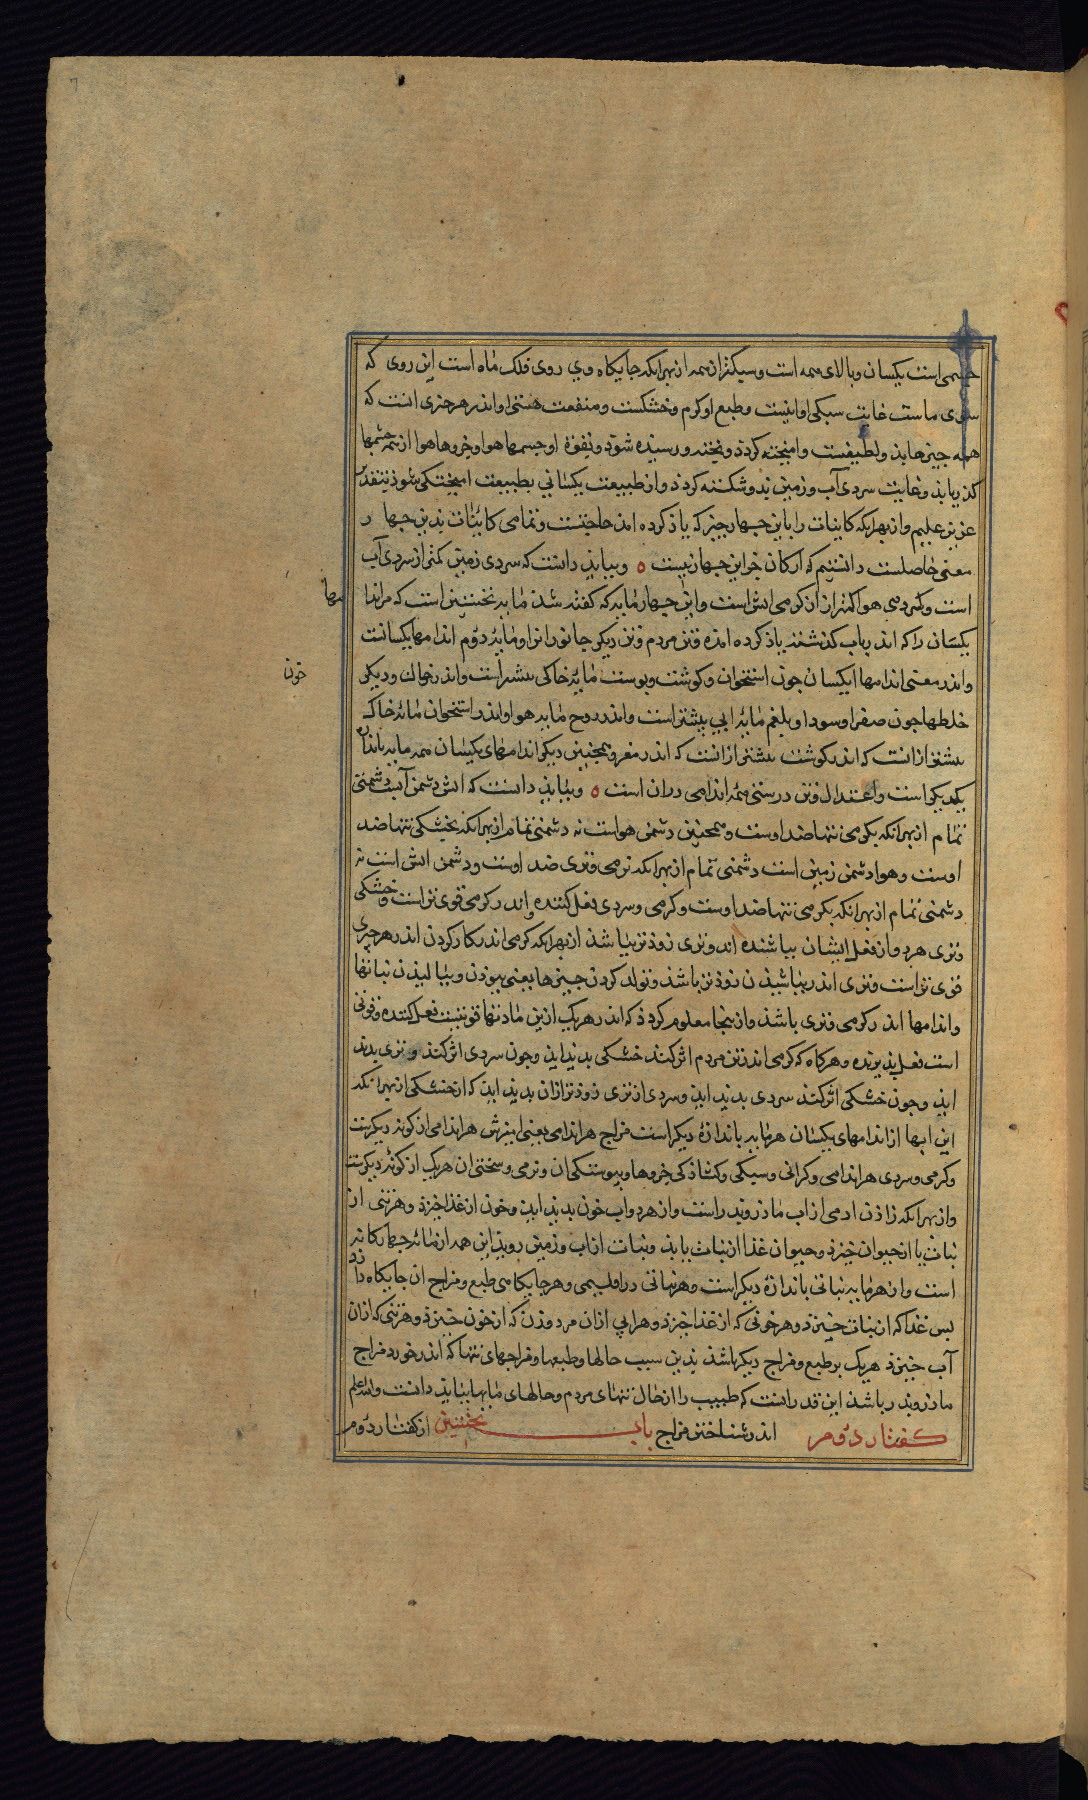 جسمی است یکسان و بالای همه است و سبکتر از همه از بهر انکه جایکاه وی روی فلک ماه است این روی که
سوی ماست غایت سبکی او اینست و طبع او کرم و خشکست و منفعت هستی او اندر هر جیزی انست که
همه جیزها بذو لطیفست و امیخته کردذ و بخته و رسیده شود و بقوة او جسمها هوا و جزوها هوا از همه جشمها
کذر یابذ و غایت سردی آب و زمین بذو شکسته کرذذ و از طبیعت یکسانی بطبیعت امیختکی شوذ بتقدیر
عزیز علیم و از بهر انکه کاینات را باین جهار جیز که یاذ کرده امذ حاجتست و تمامی کاینات بذین جهار
معنی حاصلست دانستیم که ارکان جز این جهار نیست ٥ و ببایذ دانست که سردی زمین کمتر از سردی آب
است و کرمی هوا کمتر از ان کرمی اتش است و این جهار مایه که کفته شذ مایه نخستین است که مر اندا
مها
یکسان را که اندر باب کذشته یاذ کرده امذ و تن مردم و تن دیکر جانوران را و مایهٔ دوم اندامها یکسانست
و اندر معنی اندامها ایکسان جون استخوان و کوشت و بوست مایهٔ خاکی بیشتر است و اندر خون و دیکر
خون
خلطها جون صفرا و سودا و بلغم مایهٔ ابی بیشتر است و اندر روح مایه هوا و اندر استخوان مایهٔ خاک
بیشتر از انست که اندر کوشت بیشتر از انست که اندر مغز و همجنین دیکر اندامهای یکسان همه مایه باندازه
یکدیکر است و اعتدال و تن درستی همه اندامی دران است ٥ و ببایذ دانست که اتش دشمن آبست دشمنی
تمام از بهر انکه بکرمی تنها ضد اوست و همجنین دشمن هواست نه دشمنی تمام از بهر انکه بخشکی تنها ضد
اوست و هوا دشمن زمین است دشمنی تمام از بهر انکه نرمی و تری ضد اوست و دشمن اتش است نه
دشمنی تمام از بهر انکه بکرمی تنها ضد اوست و کرمی و سردی فعل کننده و اندر کرمی قوی تر است و خشکی
و تری هر دو از فعل ایشان بباشنده اند و تری زوذتر بباشذ از بهر انکه کرمی اندر کار کردن اندر هر جیزی
قوی تر است و تری اندر بباشیذن زوذتر باشذ و تولد کردن جیزها یعنی ببوذن و ببالیذن نباتها
و اندامها اندر کرمی و تری باشذ و ازینجا معلوم کردذ که اندر هر یک ازین مادتها قوتیست فعل کننده و قوتی
است فعل بذیرنده و هرکاه که کرمی اندر تن مردم اثر کند خشکی بدید ایذ و جون سردی اثر کند و تری بدید
ایذ و جون خشکی اثر کند سردی بدید ایذ و سردی از تری زوذتر از ان بدید ایذ که از خشکی از بهر انکه
این ابها از اندامهای یکسان هر مایه باندازهٔ دیکر است مزاج هر اندامی یعنی امیزش هر اندامی از کونه دیکرست
و کرمی و سردی هر اندامی و کرانی و سبکی و کشاذکی جزوها و بیوستکی ان و نرمی و سختی ان هر یک از کونهٔ دیکرست
و از بهر انکه زاذن ادمی از اب ماذر و بدر است و از هر دو اب خون بدید ایذ و خون از غذا خیزذ و هر تنی از
نبات یا از حیوان خیزذ و حیوان غذا از نبات یابذ و نبات از اب و زمین رویذ این همه از مایهٔ جهارکانه
است و از هر مایه نباتی باندازهٔ دیکر است و هر نباتی در اقلیمی و هر جایکاهی طبع و مزاج ان جایکاه دارد
بس غذا که از نبات خیزذ و هر خونی که از غذا خیزذ و هر ابی از ان مرد و زن که از خون خیزذ و هر تنی که ازان
آب خیزذ هر یک بر طبع و مزاج دیکر باشذ بذین سبب حالها و طبعها و مزاجهای تنها که اندر خورد مزاج
ماذر و بدر باشذ این قدر است که طبیب را از حال تنهای مردم و حالهای مایها ببایذ دانست والله اعلم
کفتار دوم اندر شناختن مزاج باب نخستین از کفتار دوم